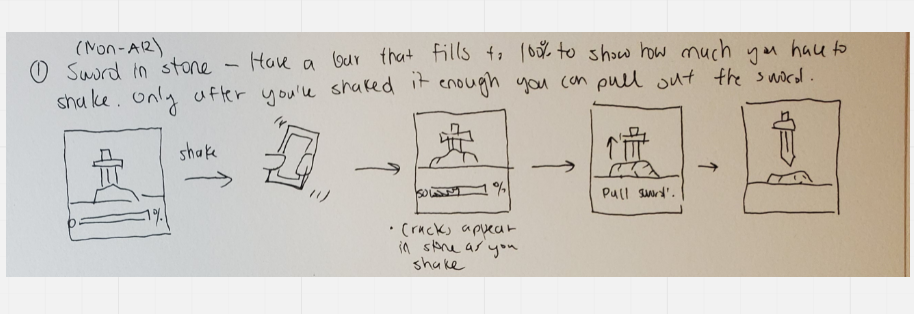 (Non-AR)
① Sword in stone - Have a bar that fills to 100% to show how much you have to
shake. Only after you've shaked it enough you can pull out the sword.
shake
0 1%
50 %
Pull sword.
• Cracks appear
in stone as you
shake